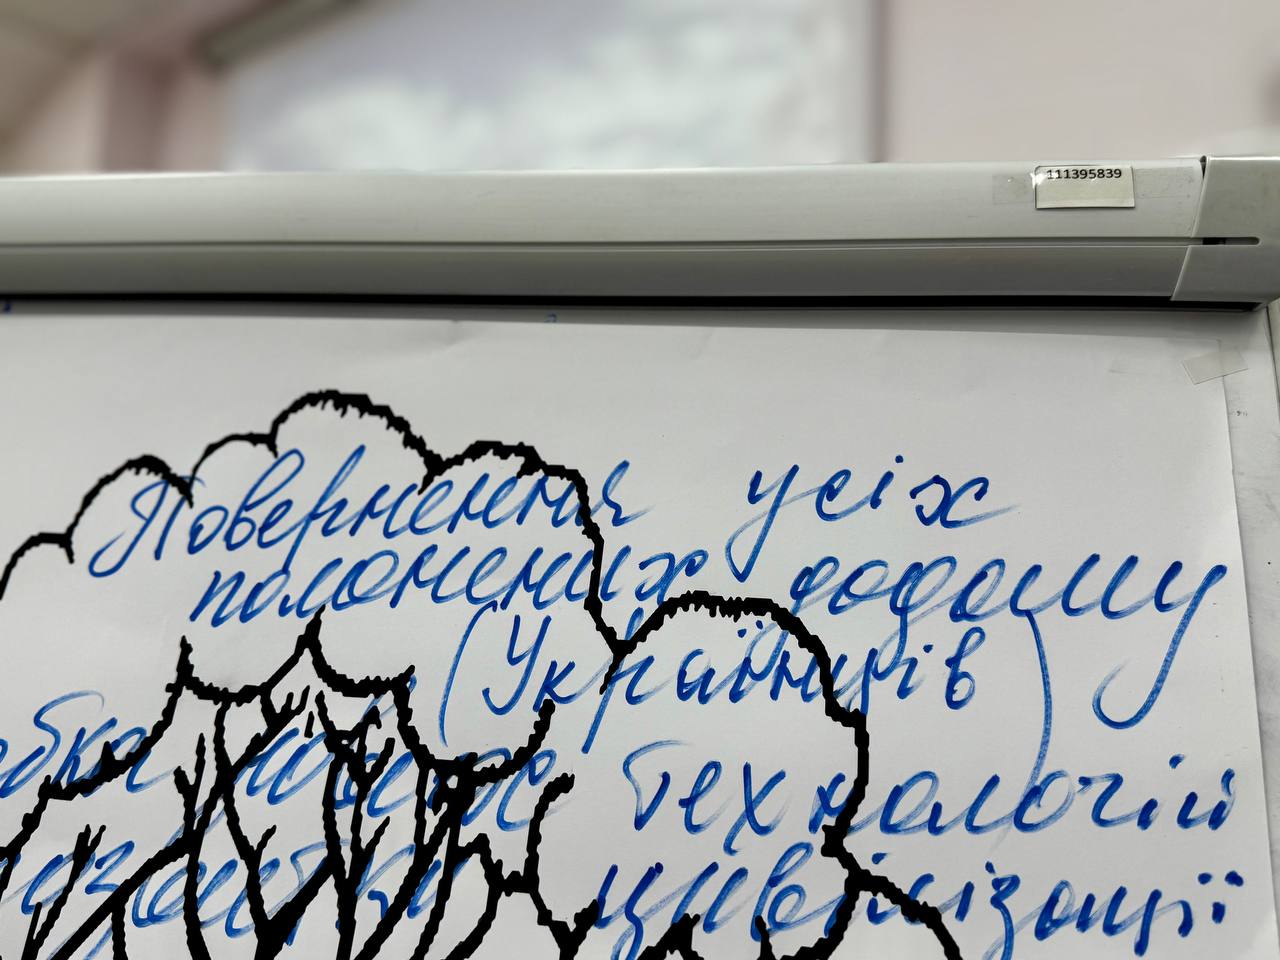 111395839
Повернення усіх
полонених додому
(Українців)
нових технологій
розвитку цивілізації